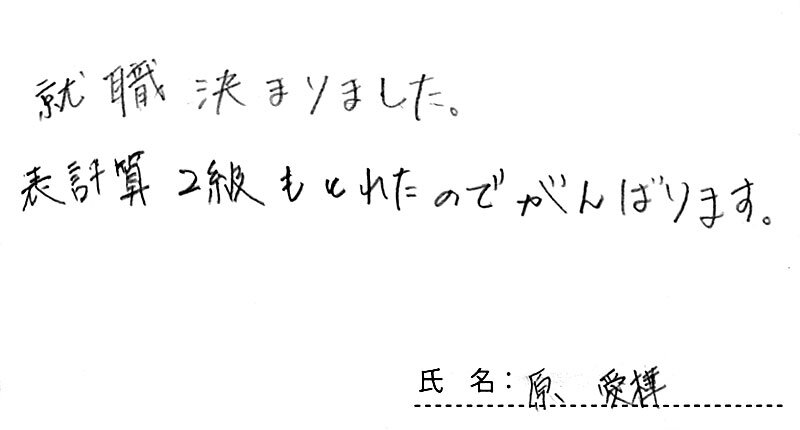 就職決まりました。
表計算2級もとれたのでがんばります。
氏名：原、愛樺